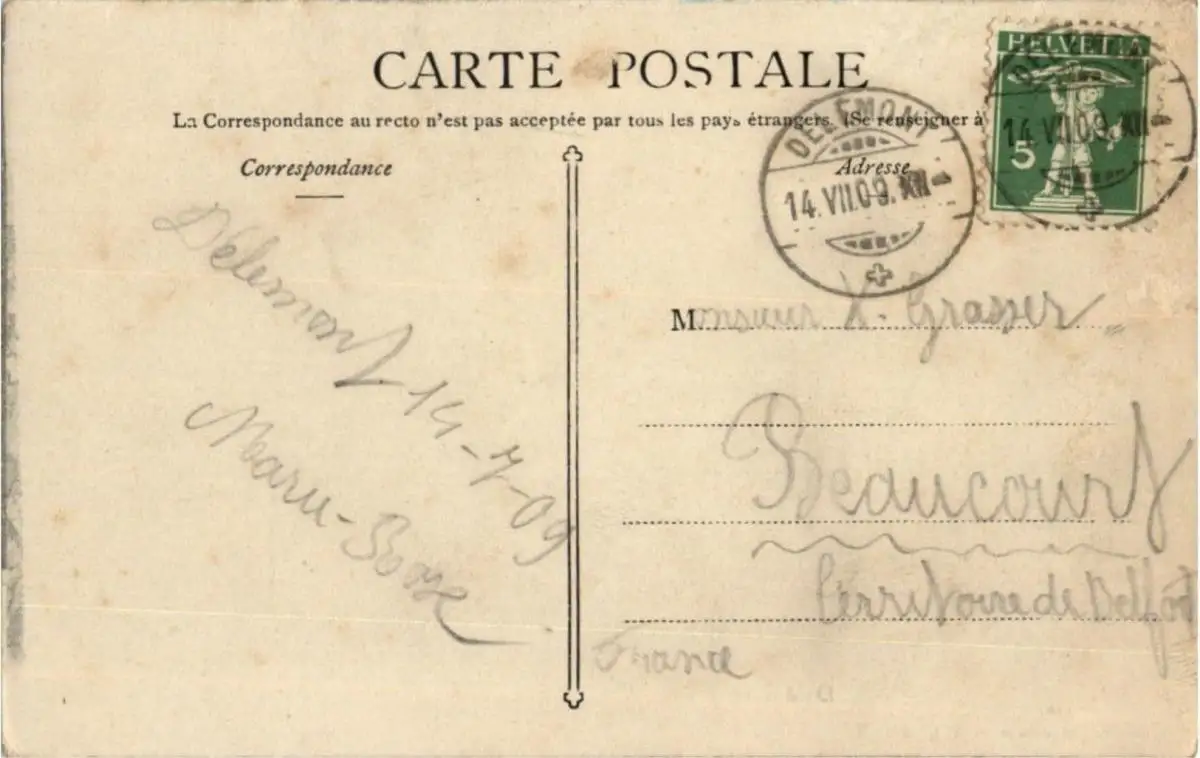 CARTE POSTALE
La Correspondance au recto n'est pas acceptée par tous les pays étrangers. (Se renseigner à
Correspondance
Adresse
HELVETIA
5
DELEMONT
14.VII.09.XII
DELEMONT
14.VII.09.XII
Délémont 14-7-09
Marie-Rose
Monsieur X. Grasser
Beaucourt
Territoire de Belfort
France